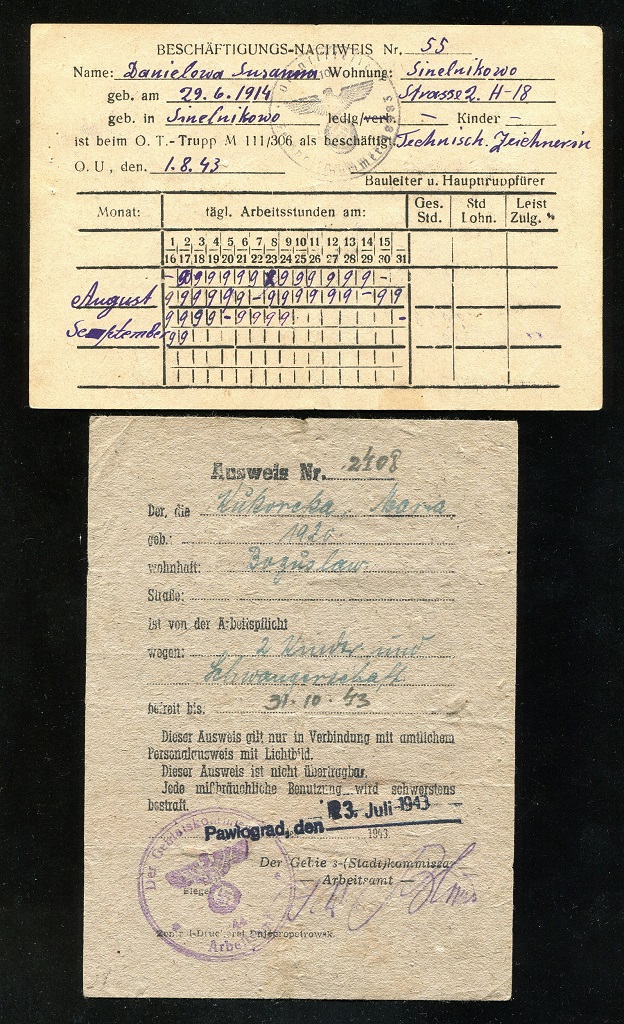 BESCHÄFTIGUNGS-NACHWEIS Nr. 55
Name: Danielowa Susanna Wohnung: Sinelnikowo
geb. am 29.6.1914 Strasse 2. H-18
geb. in Sinelnikowo ledig/verh. — Kinder —
ist beim O. T.-Trupp M 111/306 als beschäftigt. Technisch. Zeichnerin
O. U., den. 1.8.43
Bauleiter u. Haupttruppfürer
Monat: tägl. Arbeitsstunden am: Ges. Std. Std Lohn. Leist Zulg.
1 2 3 4 5 6 7 8 9 10 11 12 13 14 15
16 17 18 19 20 21 22 23 24 25 26 27 28 29 30 31
August
September
Ausweis Nr. 2408
Der, die Maria
geb.: 1920
wohnhaft: Boguslaw
Straße:
ist von der Arbeitspflicht
wegen: 2 Kinder und
Schwangerschaft
befreit bis. 31.10.43
Dieser Ausweis gilt nur in Verbindung mit amtlichem
Personalausweis mit Lichtbild.
Dieser Ausweis ist nicht übertragbar.
Jede mißbräuchliche Benutzung wird schwerstens
bestraft.
Pawlograd, den 23. Juli 1943
1943.
Der Gebietskommiss
Der Gebie s-(Stadt)kommissa
— Arbeitsamt —
Siegel
Zentral-Druckerei Dnjepropetrowsk.